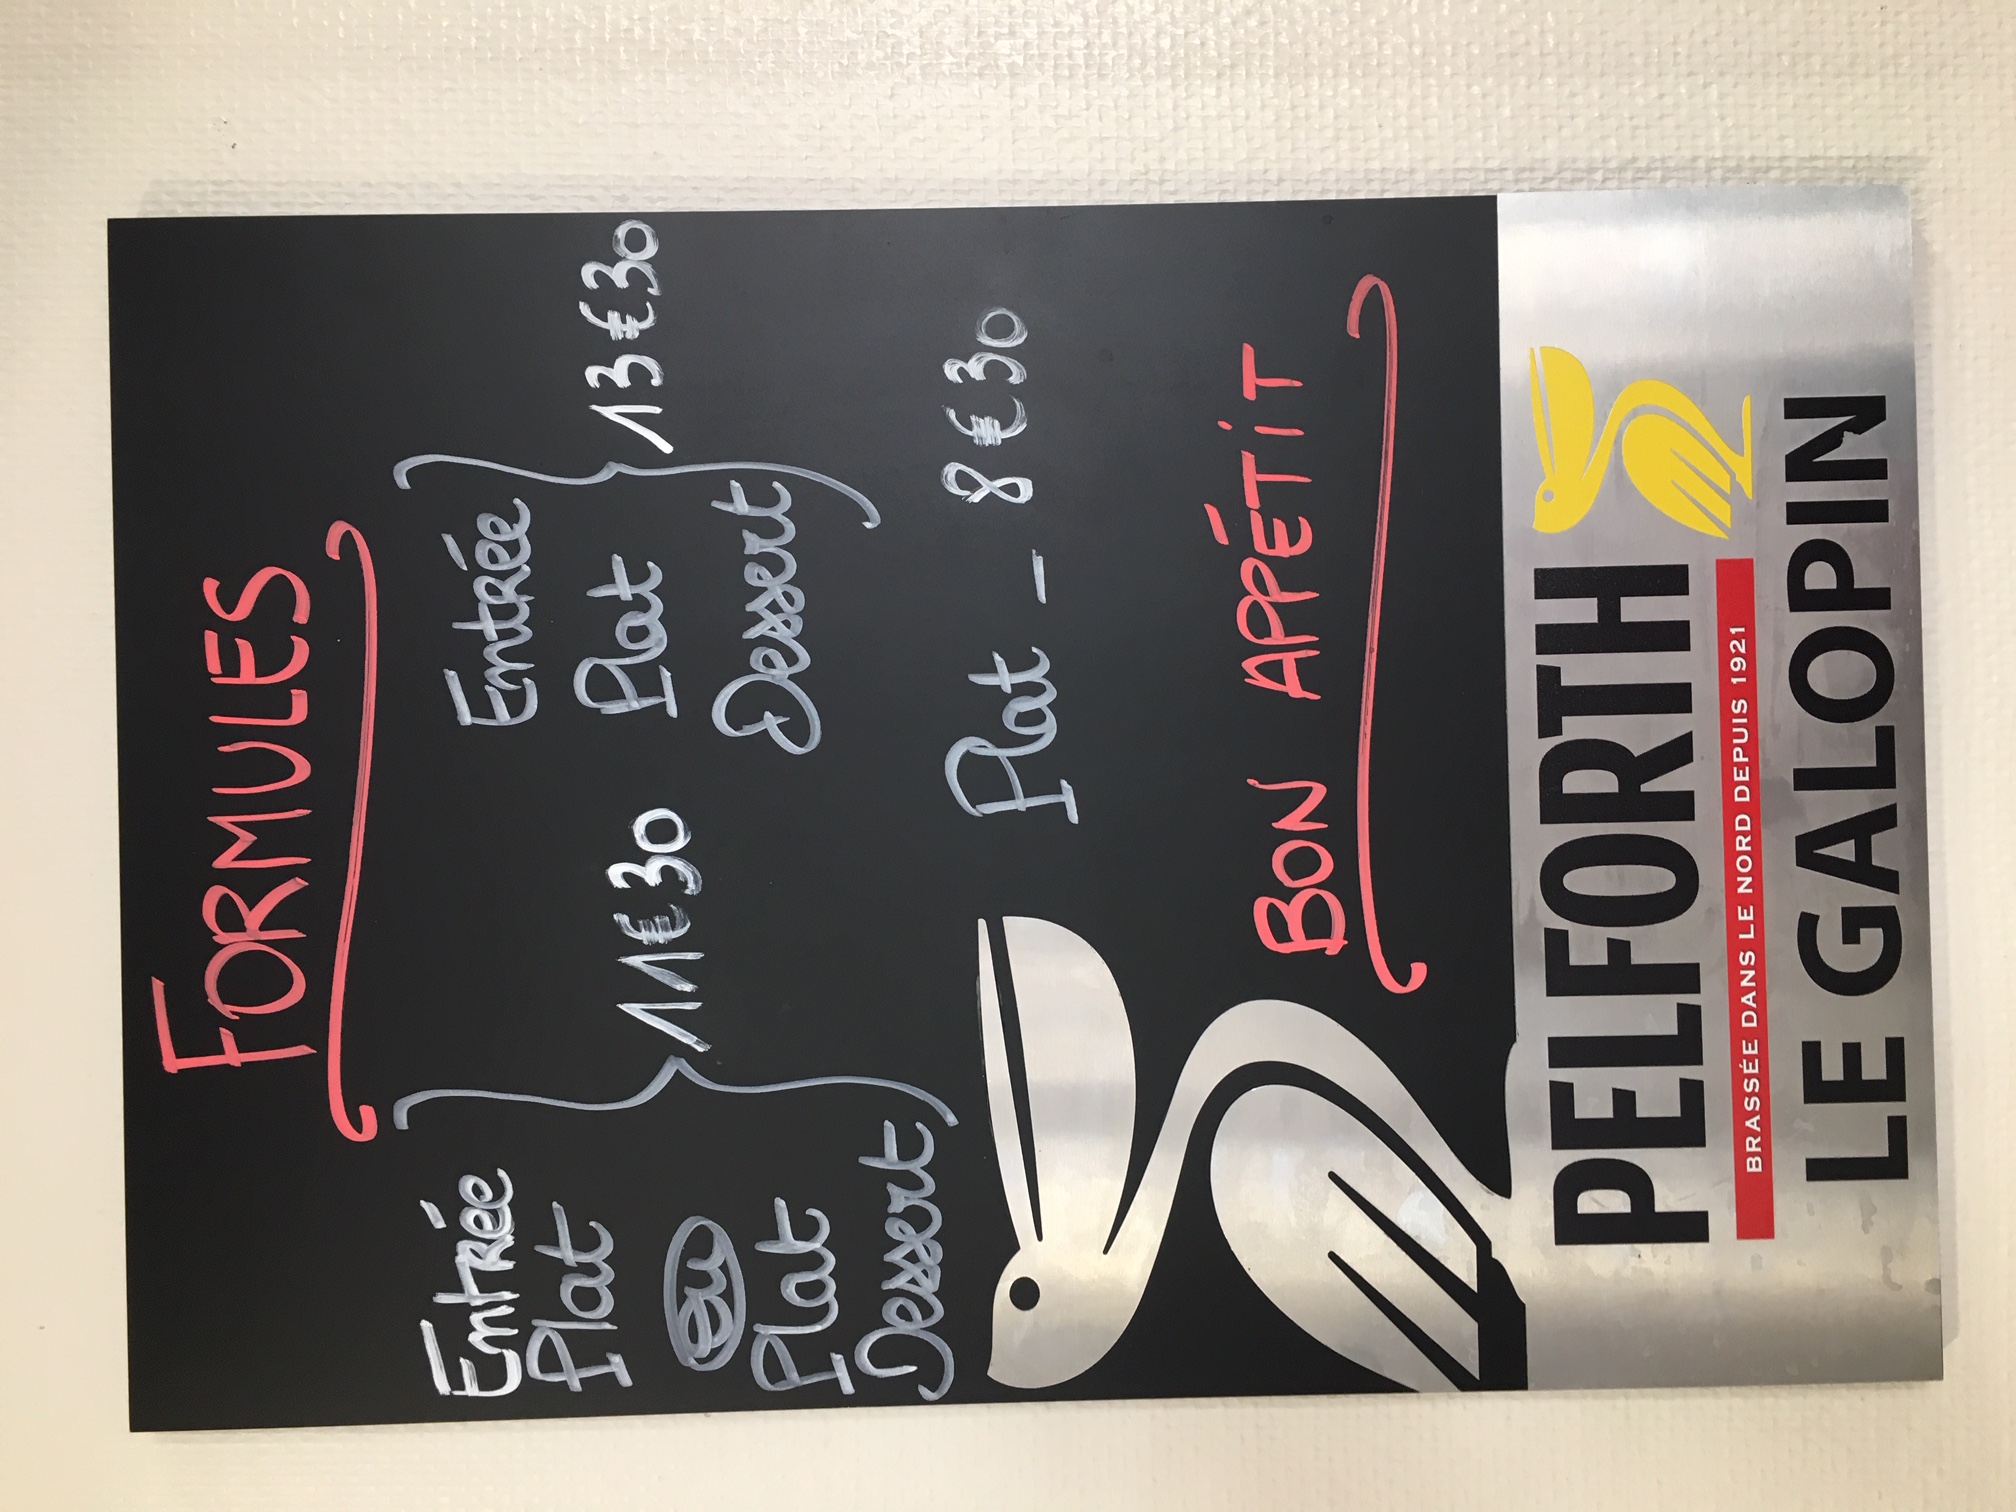 FORMULES
Entrée
Plat
ou
Plat
Dessert
11€30
Entrée
Plat
Dessert
13€30
Plat - 8€30
BON APPÉTIT
PELFORTH
BRASSÉE DANS LE NORD DEPUIS 1921
LE GALOPIN